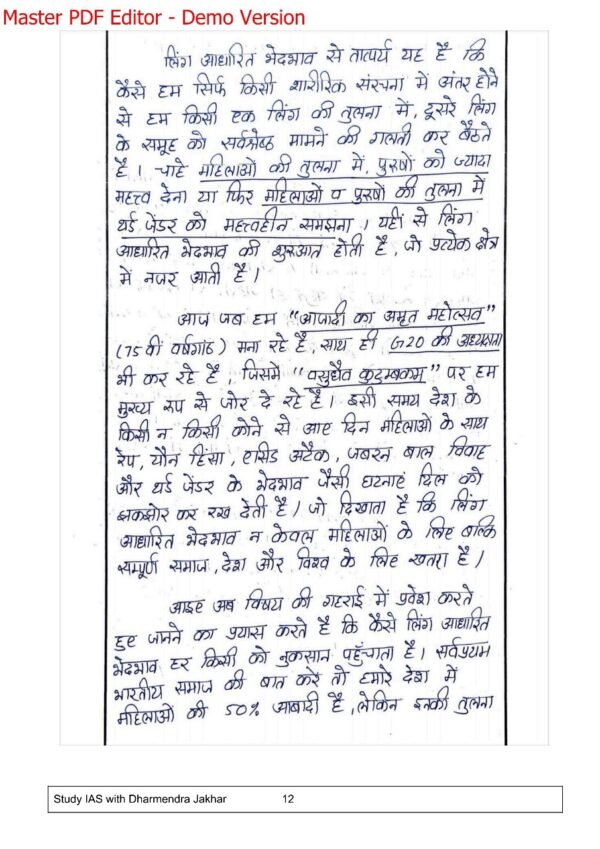 Master PDF Editor - Demo Version
लिंग आधारित भेदभाव से तात्पर्य यह है कि
कैसे हम सिर्फ किसी शारीरिक संरचना में अंतर होने
से हम किसी एक लिंग की तुलना में, दूसरे लिंग
के समूह को सर्वश्रेष्ठ मामने की गलती कर बैठते
है। चाहे महिलाओं की तुलना में, पुरुषों को ज्यादा
महत्त्व देना या फिर महिलाओं व पुरुषों की तुलना में
थर्ड जेंडर को महत्त्वहीन समझना। यहीं से लिंग
आधारित भेदभाव की शुरुआत होती है, जो प्रत्येक क्षेत्र
में नजर आती है।
आज जब हम "आजादी का अमृत महोत्सव"
(75 वीं वर्षगांठ) मना रहे है, साथ ही G20 की अध्यक्षता
भी कर रहे है, जिसमें "वसुधैव कुटुम्बकम्" पर हम
मुख्य रूप से जोर दे रहे है। इसी समय देश के
किसी न किसी कोने से आए दिन महिलाओं के साथ
रेप, यौन हिंसा, एसिड अटैक, जबरन बाल विवाह
और थर्ड जेंडर के भेदभाव जैसी घटनाएं दिल को
झकझोर कर रख देती है। जो दिखाता है कि लिंग
आधारित भेदभाव न केवल महिलाओं के लिए बल्कि
सम्पूर्ण समाज, देश और विश्व के लिए खतरा है।
आइए अब विषय की गहराई में प्रवेश करते
हुए जामने का प्रयास करते है कि कैसे लिंग आधारित
भेदभाव हर किसी को नुकसान पहुँचाता है। सर्वप्रथम
भारतीय समाज की बात करे तो हमारे देश में
महिलाओं की 50% आबादी है, लेकिन इनकी तुलना
Study IAS with Dharmendra Jakhar 12